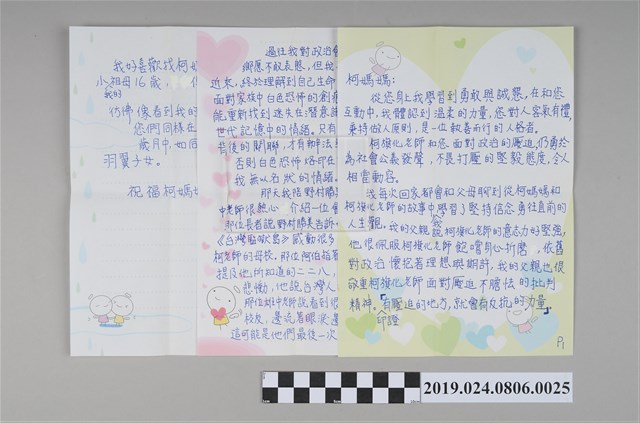 柯媽媽:
從您身上我學習到勇敢與誠懇,在和您
互動中,我體認到溫柔的力量,您對人客氣有禮,
秉持做人原則,是一位執善而行的人格者。
柯旗化老師和您面對政治的壓迫,仍勇於
為社會公義發聲,不畏打壓的堅毅態度,令人
相當動容。
我每次回家都會和父母聊到從柯媽媽和
柯旗化老師的故事中學習了堅持信念勇往直前的
人生觀。我的父親說柯旗化老師的意志力的堅強,
他很佩服柯旗化老師飽嚐身心折磨,依舊
對政治懷抱著理想與期許,我的父親也很
敬重柯旗化老師面對壓迫不膽怯的批判
精神。「有壓迫的地方,就會有反抗的力量。」
印證
P1
過往我對政治
鄉愿不敢表態,但我
近來,終於理解到自己生命
面對家族中白色恐怖的創
能重新找到迷失在潛意識
世代記憶中的情緒。只有
背後的關聯,才有辦法
否則白色恐怖烙印在
我無以名狀的情緒。
那天我陪野村勝美
中老師很熱心 介紹一位
那位長者說野村勝美告訴
《台灣監獄島》感動很多
柯老師的母校。那位阿伯指著
提及他所知道的二二八,
悲慟,他說台灣人
那位雄中老師說看到
校友,邊流著眼淚邊
這可能是他們最後一次
我好喜歡找柯媽
小祖母16歲,
我的
彷彿像看到我的
您們同樣在
歲月中,如同
羽翼子女。
祝福柯媽媽
2019.024.0806.0025